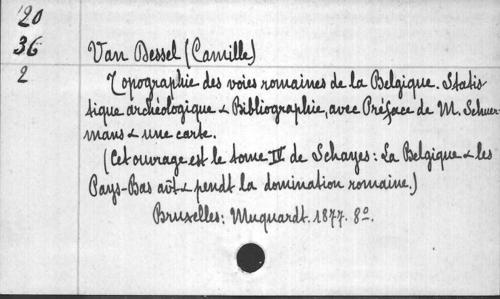 20
36 Van Dessel (Camille)
2 Topographie des voies romaines de la Belgique. Statis-
tique archéologique & Bibliographie, avec Préface de M. Schuer-
mans & une carte.
(Cet ouvrage est le tome IV de Schayes: La Belgique & les
Pays-Bas avt & pendt la domination romaine.)
Bruxelles: Muquardt. 1877. 8º.